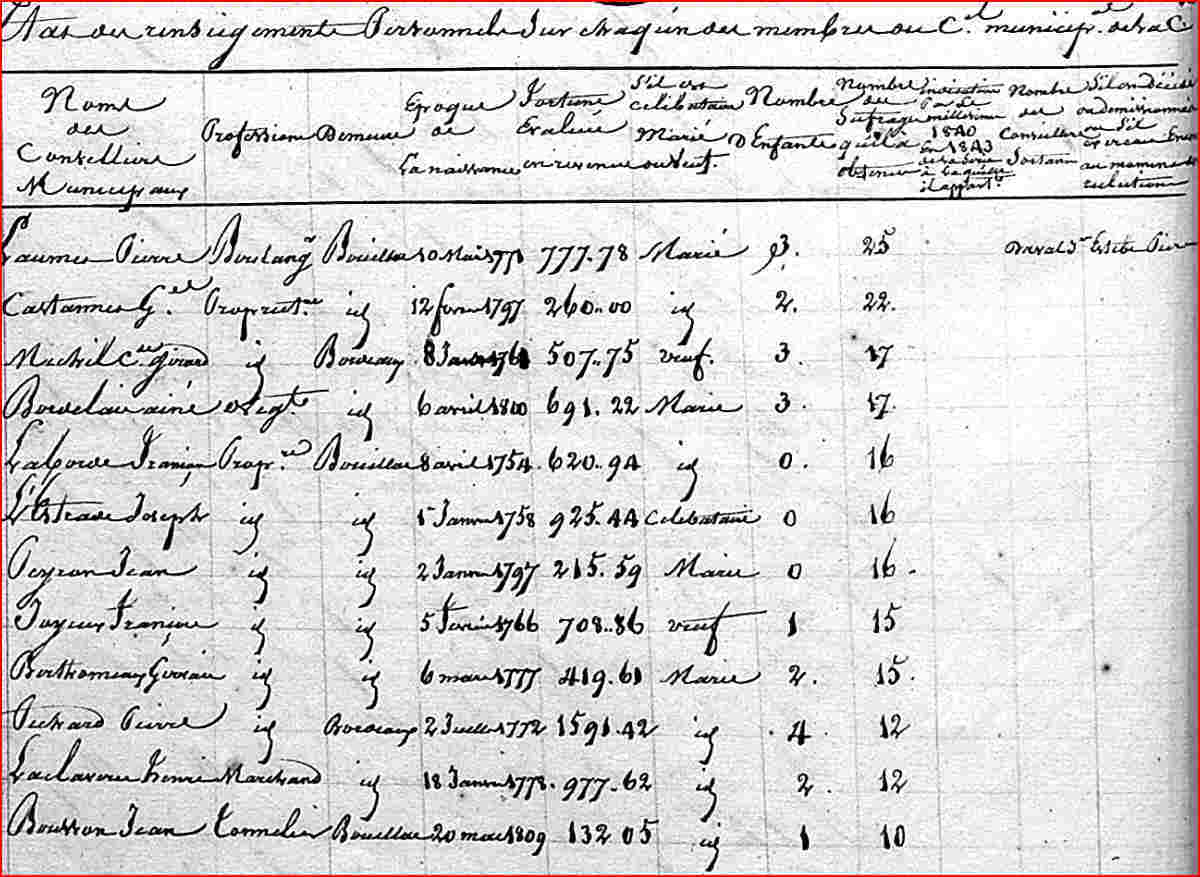 Etat des renseigements Personnels Sur chaqun des membres du C.el municip.el de la C
Noms des Conseillers Municipaux
Profession
Demeure
Epoque de La naissance
Fortune Evaluée en revenue
S'il est celibataire Marié ou veuf.
Nombre D'Enfants
Nombre de Sufrage qu'il a obtenu
Indication Par Le millesime 1840 ou 1843 de la Serie à Laquelle il appart.t
Nombre des Conseillers Sortans
S'il on décédé ou demissionnés ou S'il au moment de
Pierre Boulang.r Bouillac 10 Mai 177 777..78 Marié 3. 25 Estebe Pierre
G.el Propriet.re id 12 fevrier 1797 260..00 id 2. 22.
Girard id Bordeaux 8 507..75 veuf. 3. 17
ainé Negt. id 6 avril 1800 691. 22 Marié 3. 17.
Laborde François Propr.re Bouillac 8 avril 1754. 620..94 id 0. 16
L'Estrade Joseph id id 15 Janvier 1758 925..44 Celibataire 0 16
Peyron Jean id id 2 Janvier 1797 215. 59 Marié 0 16.
Joyeux François id id 5 Fevrier 1766 708..86 veuf 1 15
id id 6 mars 1777 419. 61 Marié 2. 15.
Pichard Pierre id Bordeaux 2 Juillet 1772 1591..42 id 4. 12
Laclaverie Henri Marchand id 18 Janvier 1778. 977..62 id 2. 12
Jean Tonnelier Bouillac 20 mai 1809 132 05 id 1 10